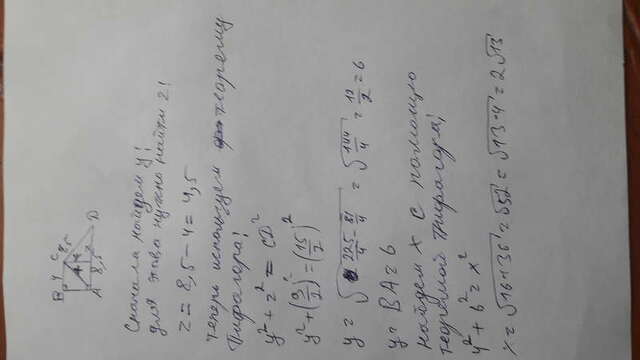 B 4 C 7,5
A 8,5 D
Сначала найдем y!
для этова нужно найти z!
z = 8,5 - 4 = 4,5
теперь используем теорему
Пифагора!
y² + z² = CD²
y² + (9/2)² = (15/2)²
y = √(225/4 - 81/4) = √(144/4) = 12/2 = 6
y = BA = 6
найдем x с помощю
теоремой Пифагора!
4² + 6² = x²
x = √(16+36) = √52 = √(13·4) = 2√13